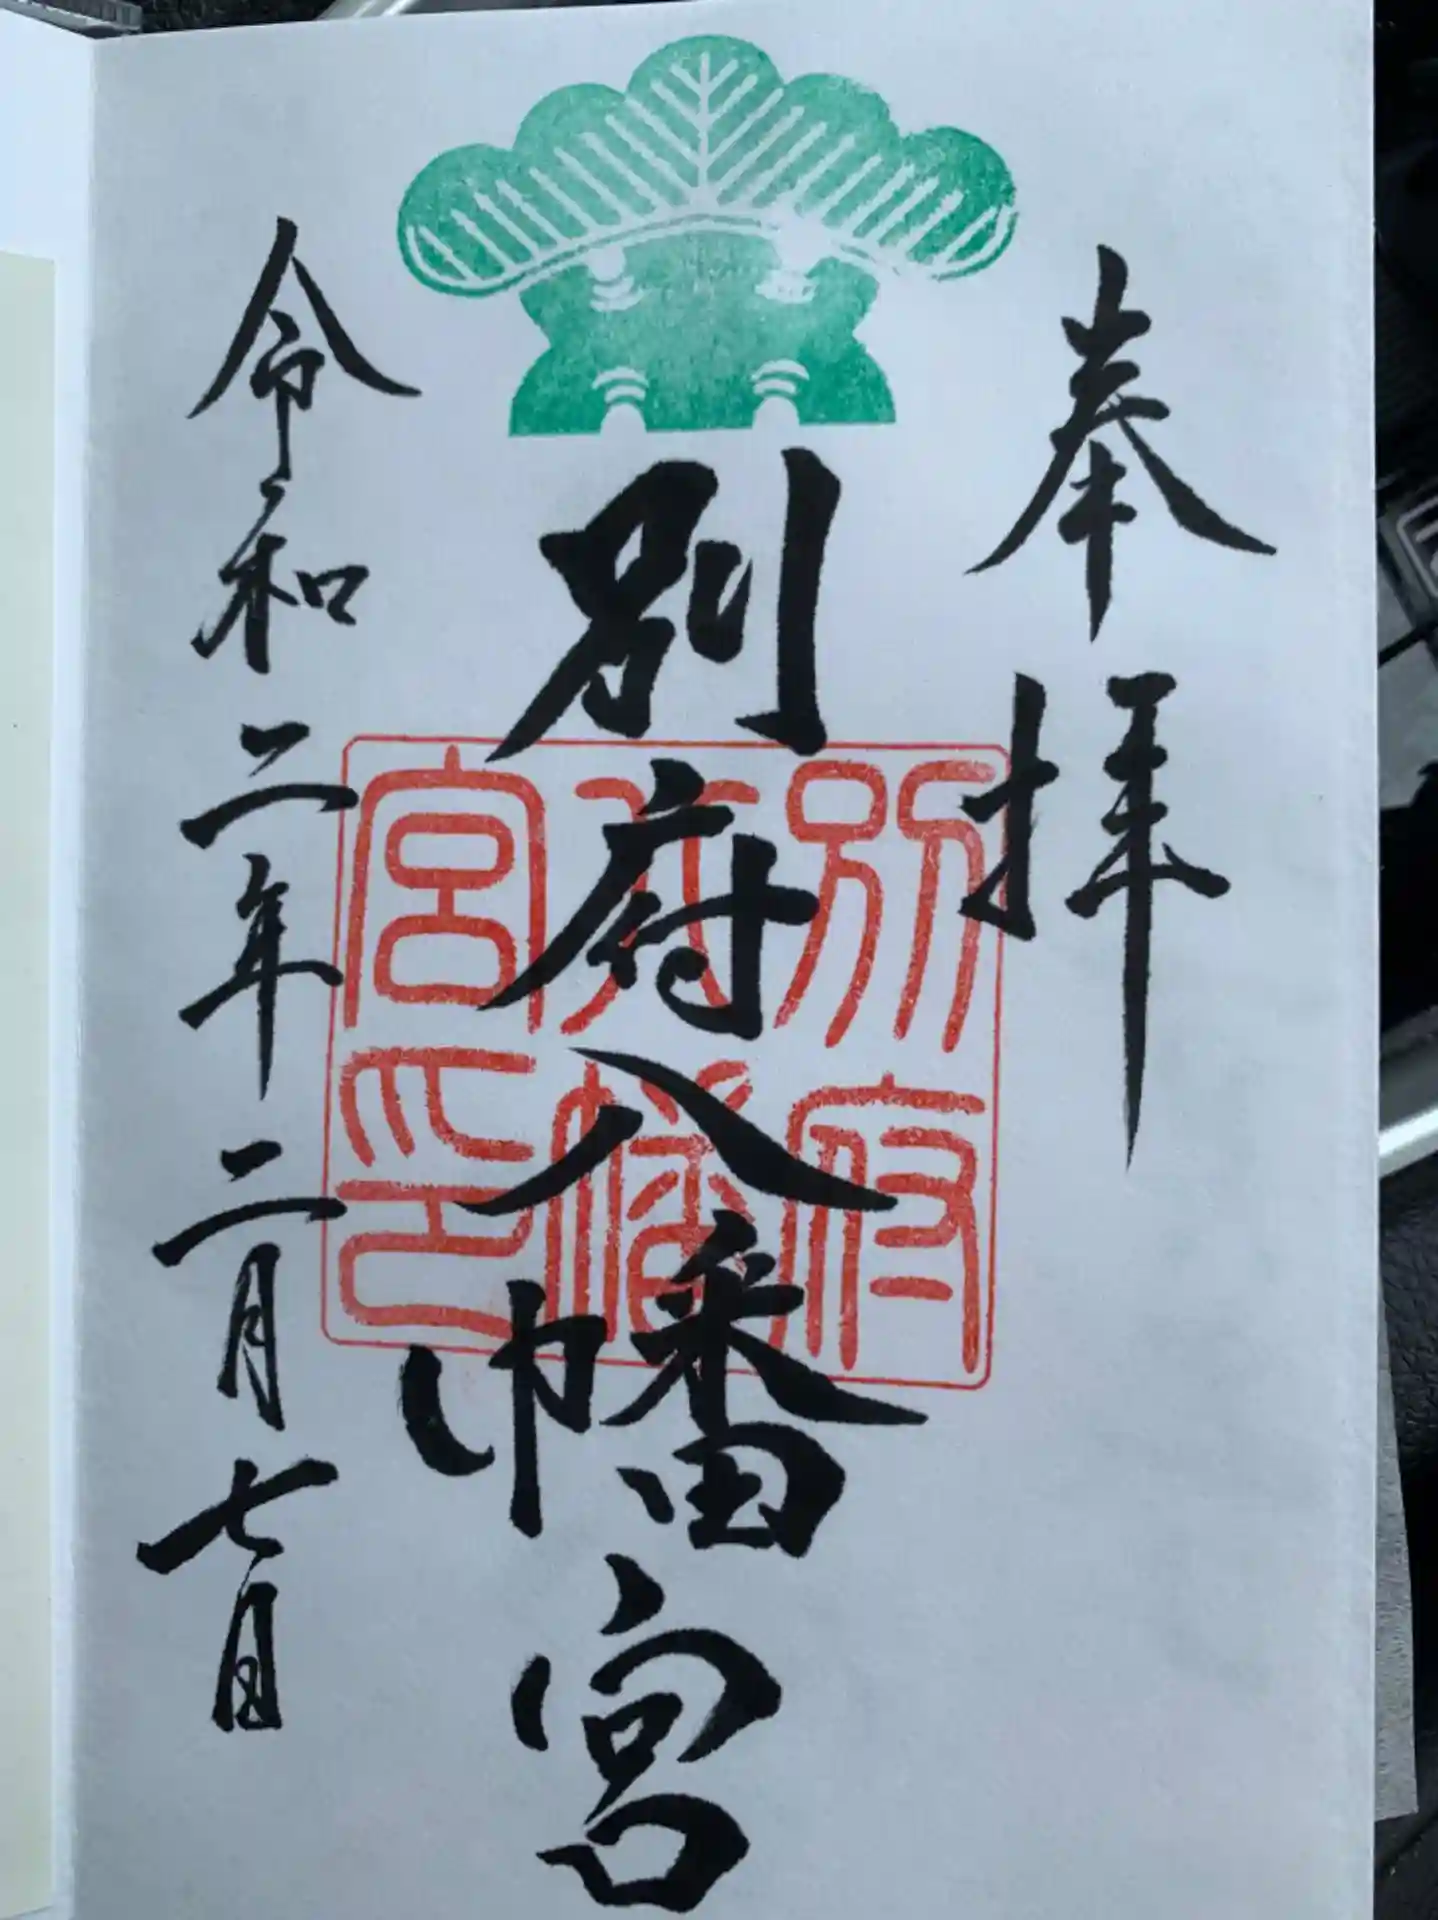 奉拝
別府八幡宮
別府
八幡
宮印
令和二年二月七日